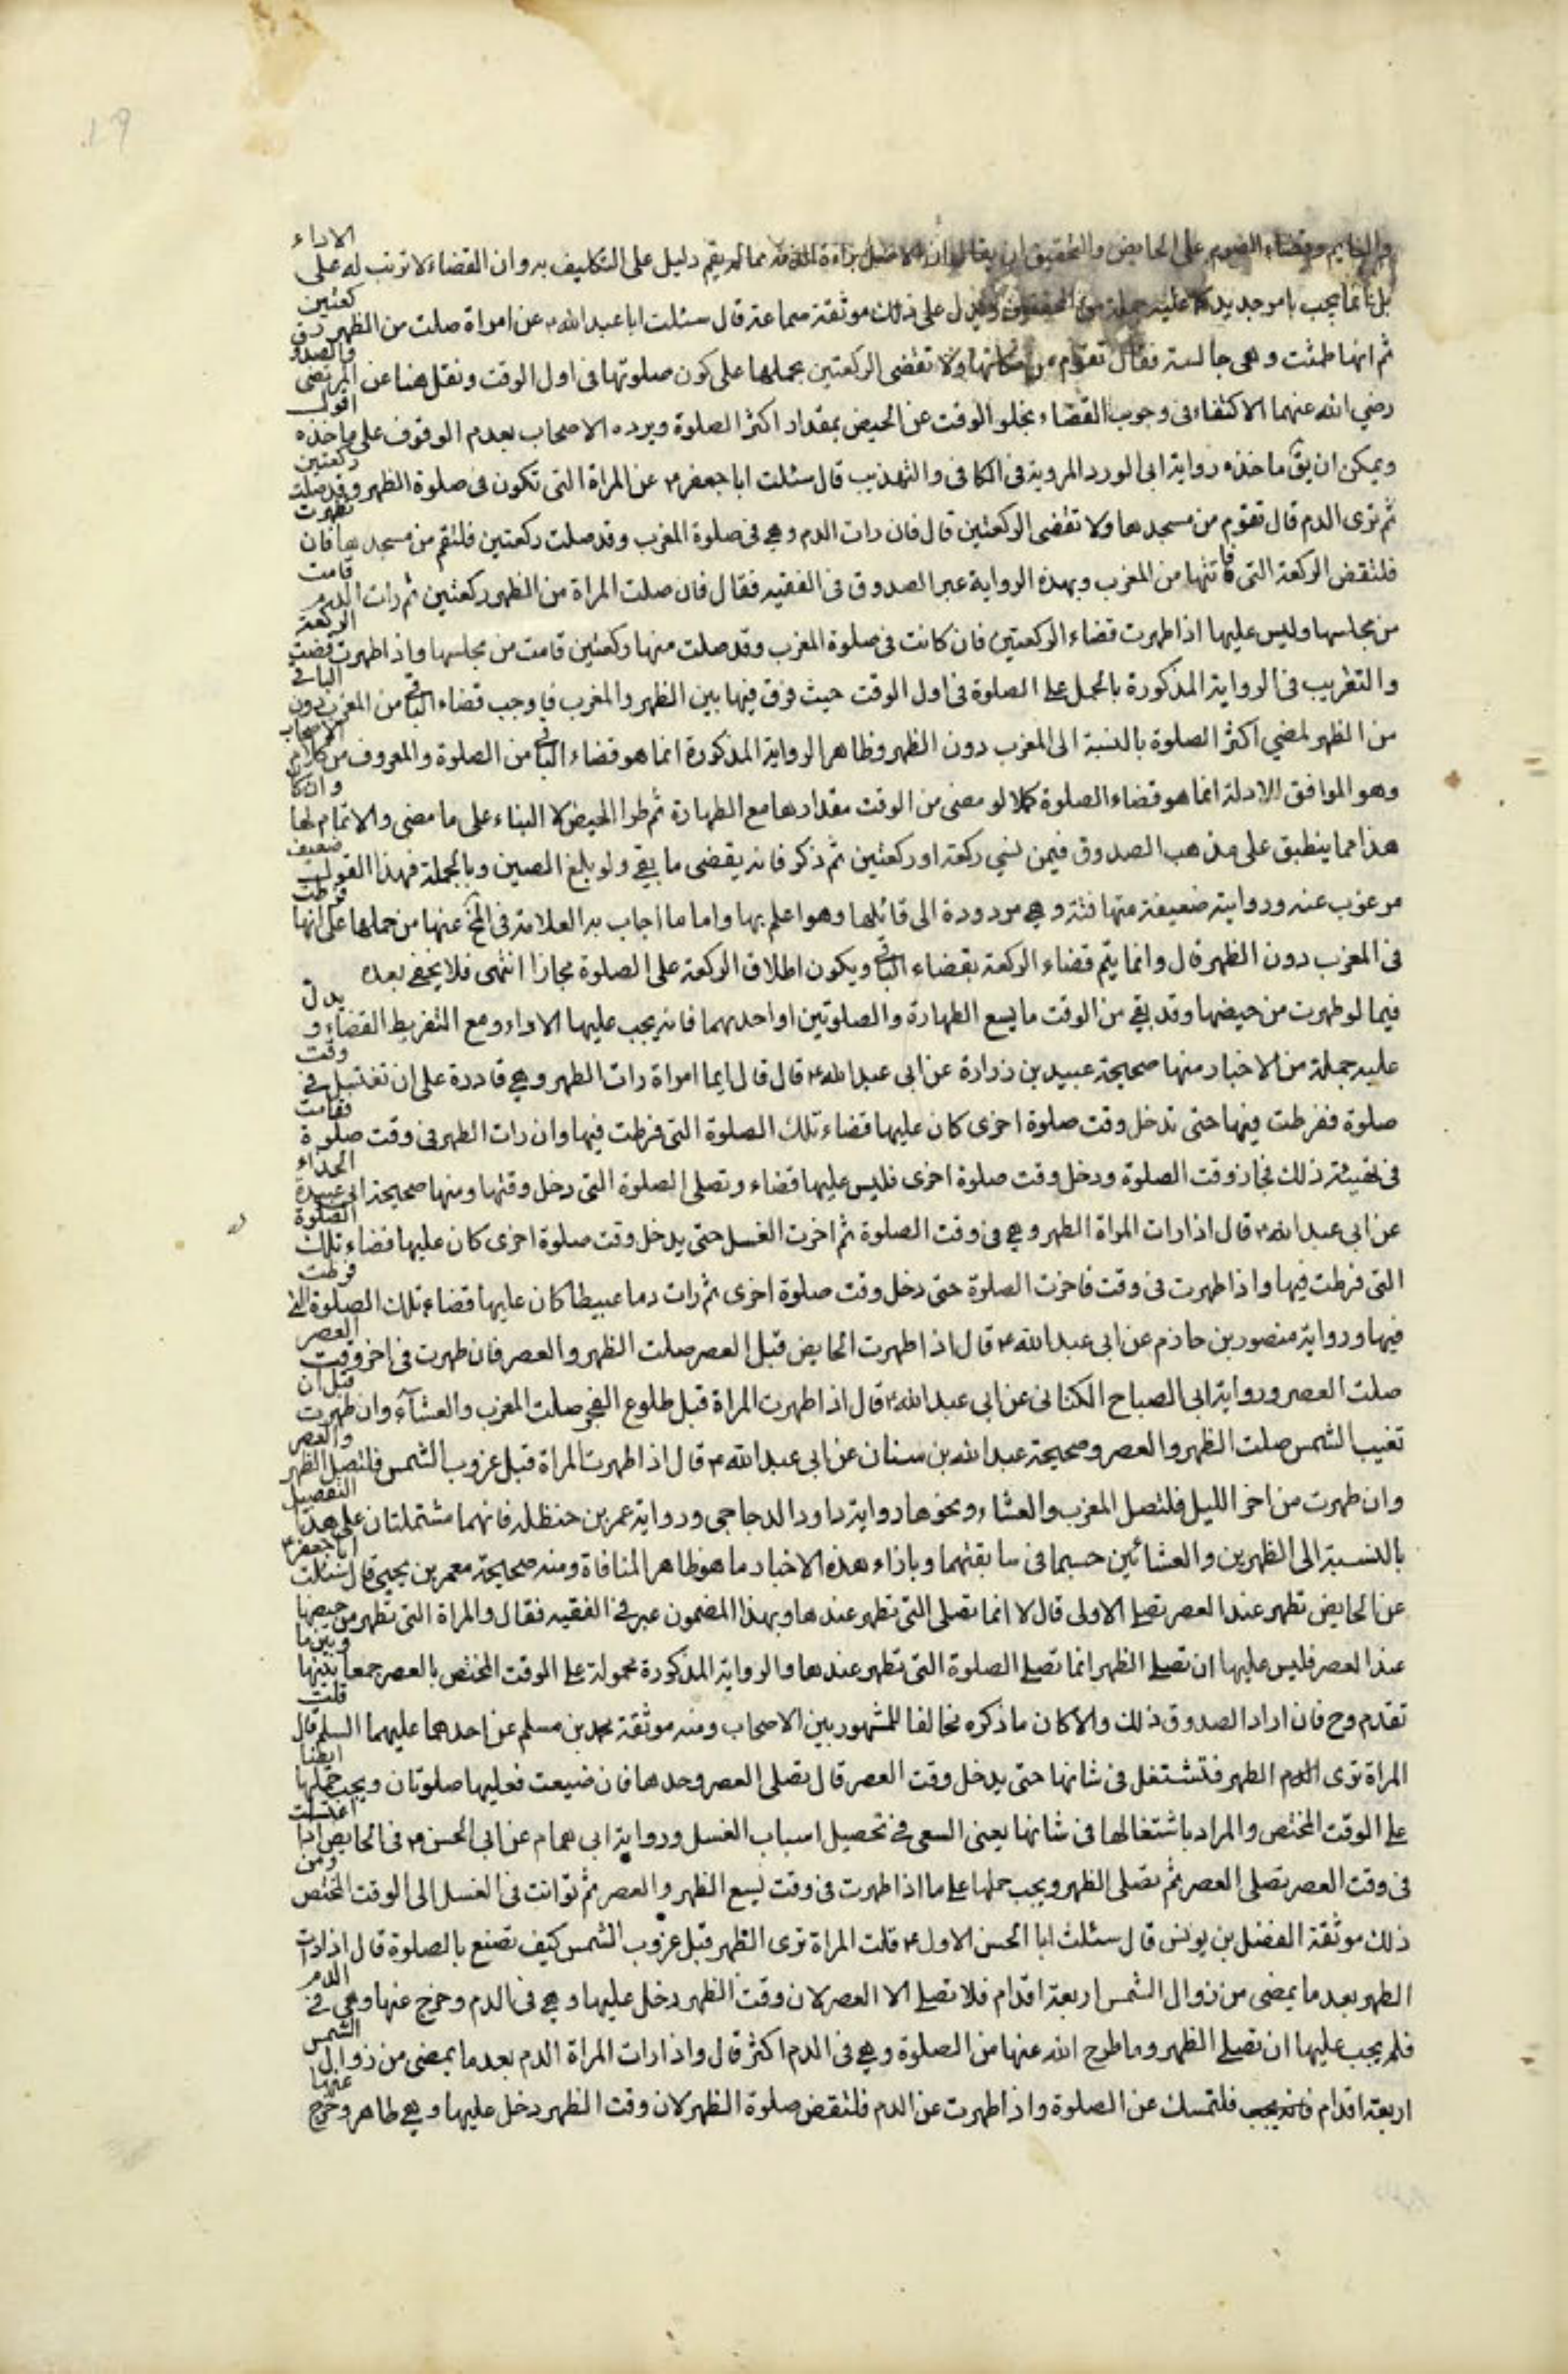 والنايم وقضاء الصوم على الحايض والتحقيق ان يقال ان الاصل براءة الذمة مما لم يقم دليل على التكليف به وان القضاء لا ترتب له على الاداء
بل انما يجب بامر جديد كما عليه جملة من المحققين ويدل على ذلك موثقة سماعة قال سئلت ابا عبد الله ع عن امراة صلت من الظهر ركعتين
ثم انها طمثت وهى جالسة فقال تقوم من مكانها ولا تقضى الركعتين بحملها على كون صلوتها فى اول الوقت ونقل هنا عن المرتضى والصدوق
رضي الله عنهما الاكتفاء فى وجوب القضاء بخلو الوقت عن الحيض بمقدار اكثر الصلوة ويرده الاصحاب بعدم الوقوف على ماخذه اقول
ويمكن ان يق ماخذه رواية ابى الورد المروية فى الكافى والتهذيب قال سئلت ابا جعفر ع عن المراة التى تكون فى صلوة الظهر وقد صلت ركعتين
ثم ترى الدم قال تقوم من مسجدها ولا تقضى الركعتين قال فان رات الدم وهي فى صلوة المغرب وقد صلت ركعتين فلتقم من مسجدها فان تطهرت
فلتقض الركعة التى فاتتها من المغرب وبهذه الرواية عبر الصدوق فى الفقيه فقال فان صلت المراة من الظهر ركعتين ثم رات الدم قامت
من مجلسها وليس عليها اذا طهرت قضاء الركعتين فان كانت فى صلوة المغرب وقد صلت منها ركعتين قامت من مجلسها واذا طهرت قضت الركعة
والتقريب فى الرواية المذكورة بالحمل على الصلوة فى اول الوقت حيث فرق فيها بين الظهر والمغرب فاوجب قضاء الباقى من المغرب دون الباقى
من الظهر لمضي اكثر الصلوة بالنسبة الى المغرب دون الظهر وظاهر الرواية المذكورة انما هو قضاء الباقى من الصلوة والمعروف من كلام الاصحاب
وهو الموافق للادلة انما هو قضاء الصلوة كملا لو مضى من الوقت مقدارها مع الطهارة ثم طرا الحيض لا البناء على ما مضى والاتمام لها وان كان
هذا مما ينطبق على مذهب الصدوق فيمن نسي ركعة او ركعتين ثم ذكر فانه يقضى ما بقي ولو بلغ الصين وبالجملة فهذا القول ضعيف
مرغوب عنه وروايته ضعيفة متهافتة وهي مردودة الى قائلها وهو اعلم بها واما ما اجاب به العلامة فى المخ عنها من حملها على انها فرطت
فى المغرب دون الظهر قال وانما يتم قضاء الركعة بقضاء الباقى ويكون اطلاق الركعة على الصلوة مجازا انتهى فلا يخفى بعده
فيما لو طهرت من حيضها وقد بقي من الوقت ما يسع الطهارة والصلوتين او احديهما فانه يجب عليها الاداء ومع التفريط القضاء و يدل
عليه جملة من الاخبار منها صحيحة عبيد بن زرارة عن ابى عبد الله ع قال قال ايما امراة رات الطهر وهي قادرة على ان تغتسل في وقت
صلوة ففرطت فيها حتى تدخل وقت صلوة اخرى كان عليها قضاء تلك الصلوة التى فرطت فيها وان رات الطهر فى وقت صلوة فقامت
فى تهيئة ذلك فجاز وقت الصلوة ودخل وقت صلوة اخرى فليس عليها قضاء وتصلى الصلوة التى دخل وقتها ومنها صحيحة ابى عبيدة الحذاء
عن ابى عبد الله ع قال اذا رات المراة الطهر وهي فى وقت الصلوة ثم اخرت الغسل حتى يدخل وقت صلوة اخرى كان عليها قضاء تلك الصلوة
التى فرطت فيها واذا طهرت فى وقت فاخرت الصلوة حتى دخل وقت صلوة اخرى ثم رات دما عبيطا كان عليها قضاء تلك الصلوة التي فرطت
فيها ورواية منصور بن حازم عن ابى عبد الله ع قال اذا طهرت الحايض قبل العصر صلت الظهر والعصر فان طهرت فى اخر وقت العصر
صلت العصر ورواية ابى الصباح الكنانى عن ابى عبد الله ع قال اذا طهرت المراة قبل طلوع الفجر صلت المغرب والعشآء وان طهرت قبل ان
تغيب الشمس صلت الظهر والعصر وصحيحة عبد الله بن سنان عن ابى عبد الله ع قال اذا طهرت المراة قبل غروب الشمس فلتصل الظهر والعصر
وان طهرت من اخر الليل فلتصل المغرب والعشاء ونحوها رواية داود الدجاجى ورواية عمر بن حنظله فانهما مشتملتان على هذا التفصيل
بالنسبة الى الظهرين والعشائين حسبما فى سابقتهما وبازاء هذه الاخبار ما هو ظاهر المنافاة ومنه صحيحة معمر بن يحيى قال سئلت ابا جعفر ع
عن الحايض تطهر عند العصر تصلي الاولى قال لا انما تصلى التى تطهر عندها وبهذا المضمون عبر في الفقيه فقال والمراة التى تطهر من حيضها
عند العصر فليس عليها ان تصلي الظهر انما تصلي الصلوة التى تطهر عندها والرواية المذكورة محمولة على الوقت المختص بالعصر جمعا بينها وبين ما
تقدم وح فان اراد الصدوق ذلك والا كان ما ذكره مخالفا للمشهور بين الاصحاب ومنه موثقة محمد بن مسلم عن احدهما عليهما السلم قال قلت
المراة ترى الطهر فتشتغل فى شانها حتى يدخل وقت العصر قال تصلى العصر وحدها فان ضيعت فعليها صلوتان ويجب حملها ايضا
على الوقت المختص والمراد باشتغالها فى شانها يعنى السعى في تحصيل اسباب الغسل ورواية ابى همام عن ابى الحسن ع فى الحايض اذا اغتسلت
فى وقت العصر تصلى العصر ثم تصلى الظهر ويجب حملها على ما اذا طهرت فى وقت يسع الظهر والعصر ثم توانت فى الغسل الى الوقت المختص ومن
ذلك موثقة الفضل بن يونس قال سئلت ابا الحسن الاول ع قلت المراة ترى الطهر قبل غروب الشمس كيف تصنع بالصلوة قال اذا رات
الطهر بعد ما يمضى من زوال الشمس اربعة اقدام فلا تصلي الا العصر لان وقت الظهر دخل عليها وهي فى الدم وخرج عنها وهى في الدم
فلم يجب عليها ان تصلي الظهر وما طرح الله عنها من الصلوة وهي فى الدم اكثر قال واذا رات المراة الدم بعد ما يمضى من زوال الشمس
اربعة اقدام فلتمسك عن الصلوة واذا طهرت عن الدم فلتقض صلوة الظهر لان وقت الظهر دخل عليها وهي طاهر وخرج عنها